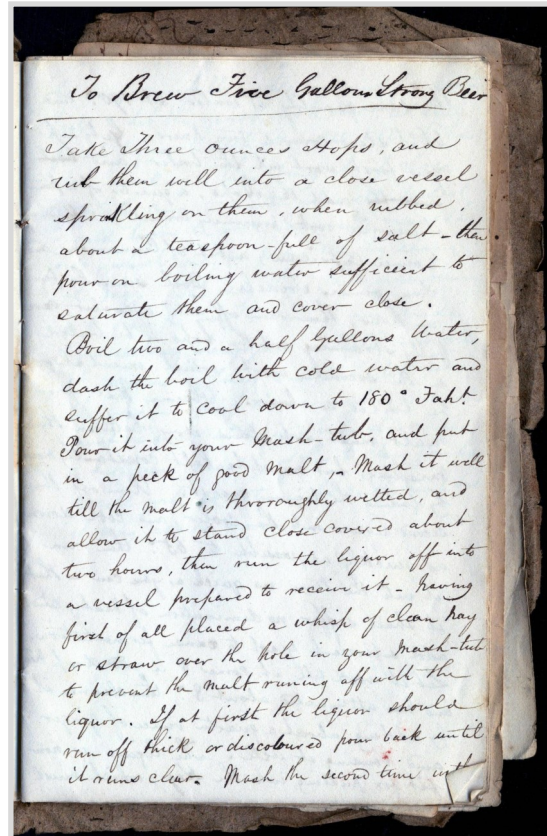 To Brew Five Gallons Strong Beer
Take Three ounces Hops, and
rub them well into a close vessel
sprinkling on them, when rubbed,
about a teaspoon-full of salt - then
pour on boiling water sufficient to
saturate them and cover close.
Boil two and a half Gallons Water,
dash the boil with cold water and
suffer it to cool down to 180° Faht
Pour it into your Mash-tub, and put
in a peck of good malt, - Mash it well
till the malt is throroughly wetted, and
allow it to stand close covered about
two hours, then run the liquor off into
a vessel prepared to receive it - having
first of all placed a whisp of clean hay
or straw over the hole in your mash-tub
to prevent the malt runing off with the
liquor. If at first the liquor should
run off thick or discoloured pour back until
it runs clear. Mash the second time with